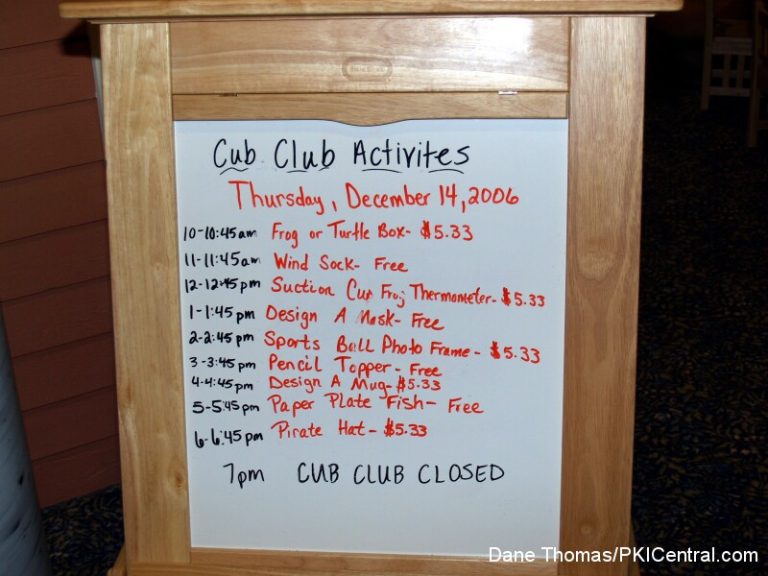 Cub Club Activites
Thursday, December 14, 2006
10-10:45am Frog or Turtle Box- $5.33
11-11:45am Wind Sock- Free
12-12:45pm Suction Cup Frog Thermometer- $5.33
1-1:45 pm Design A Mask- Free
2-2:45pm Sports Ball Photo Frame- $5.33
3-3:45pm Pencil Topper- Free
4-4:45pm Design A Mug- $5.33
5-5:45pm Paper Plate Fish- Free
6-6:45pm Pirate Hat- $5.33
7pm CUB CLUB CLOSED
Dane Thomas/PKICentral.com